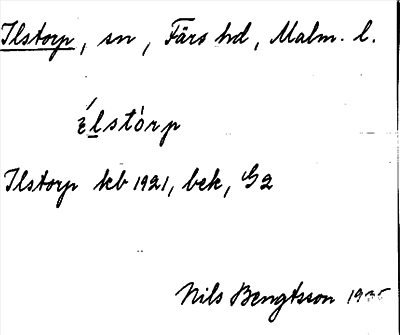 Ilstorp, sn, Färs hd, Malm. l.
élstórp
Ilstorp kb 1921, bek, G2
Nils Bengtsson